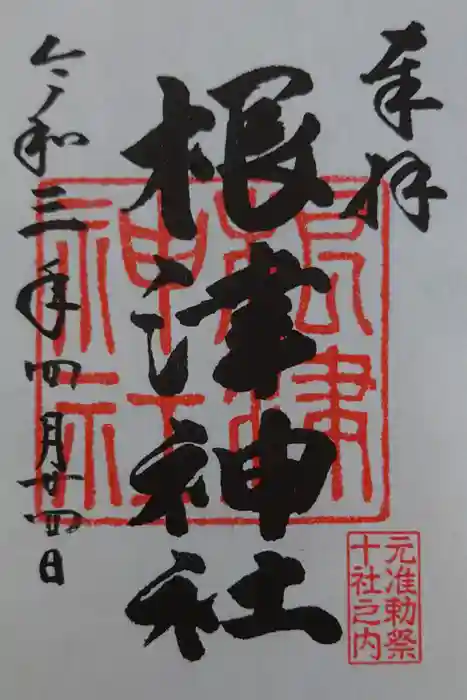 奉拝
根津神社
令和三年四月廿四日
根津
神社
元准勅祭
十社之内